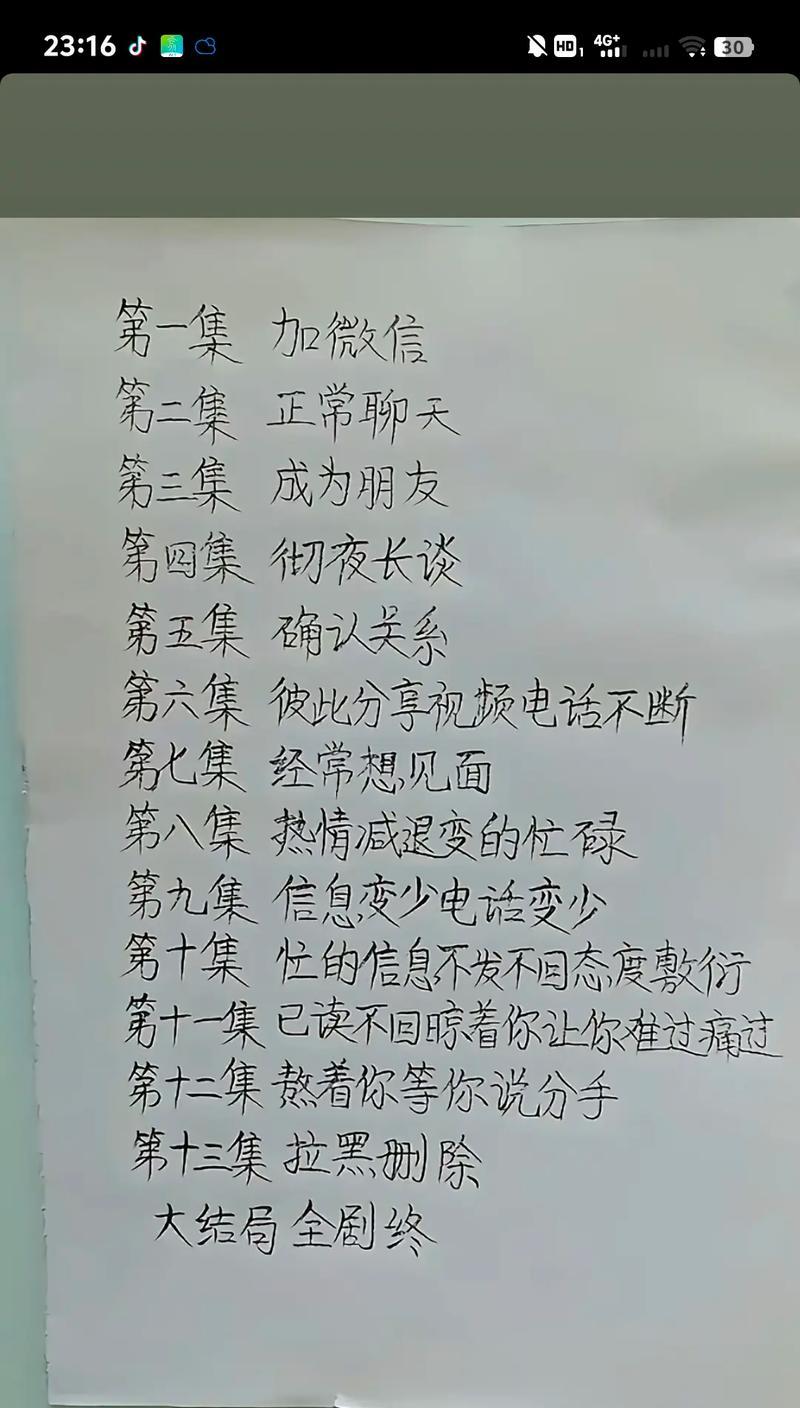 23:16
HD1 4G+ 30
第一集 加微信
第二集 正常聊天
第三集 成为朋友
第四集 彻夜长谈
第五集 确认关系
第六集 彼此分享视频电话不断
第七集 经常想见面
第八集 热情减退变的忙碌
第九集 信息变少电话变少
第十集 忙的信息不发不回态度敷衍
第十一集 已读不回晾着你让你难过痛过
第十二集 熬着你等你说分手
第十三集 拉黑删除
大结局 全剧终